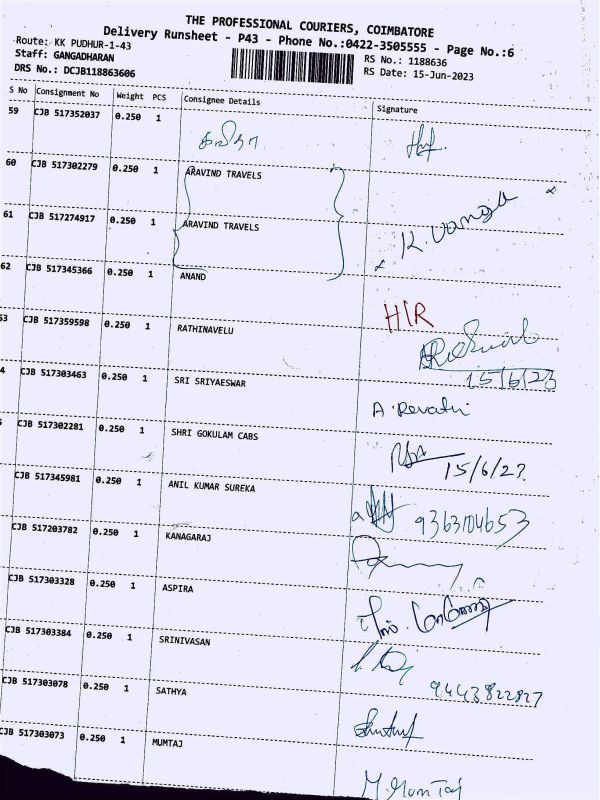 THE PROFESSIONAL COURIERS, COIMBATORE
Delivery Runsheet - P43 - Phone No.:0422-3505555 - Page No.:6
Route: KK PUDHUR-1-43
Staff: GANGADHARAN
DRS No.: DCJB118863606
RS No.: 1188636
RS Date: 15-Jun-2023
S No Consignment No Weight PCS Consignee Details Signature
59 CJB 517352037 0.250 1
60 CJB 517302279 0.250 1 ARAVIND TRAVELS
61 CJB 517274917 0.250 1 ARAVIND TRAVELS
K. Vanga
62 CJB 517345366 0.250 1 ANAND
HIR
53 CJB 517359598 0.250 1 RATHINAVELU
15/6/23
4 CJB 517303463 0.250 1 SRI SRIYAESWAR
A. Revathi
CJB 517302281 0.250 1 SHRI GOKULAM CABS
15/6/23
CJB 517345981 0.250 1 ANIL KUMAR SUREKA
9363104653
CJB 517203782 0.250 1 KANAGARAJ
CJB 517303328 0.250 1 ASPIRA
CJB 517303384 0.250 1 SRINIVASAN
9443822827
CJB 517303078 0.250 1 SATHYA
CJB 517303073 0.250 1 MUMTAJ
M. Mumtaj